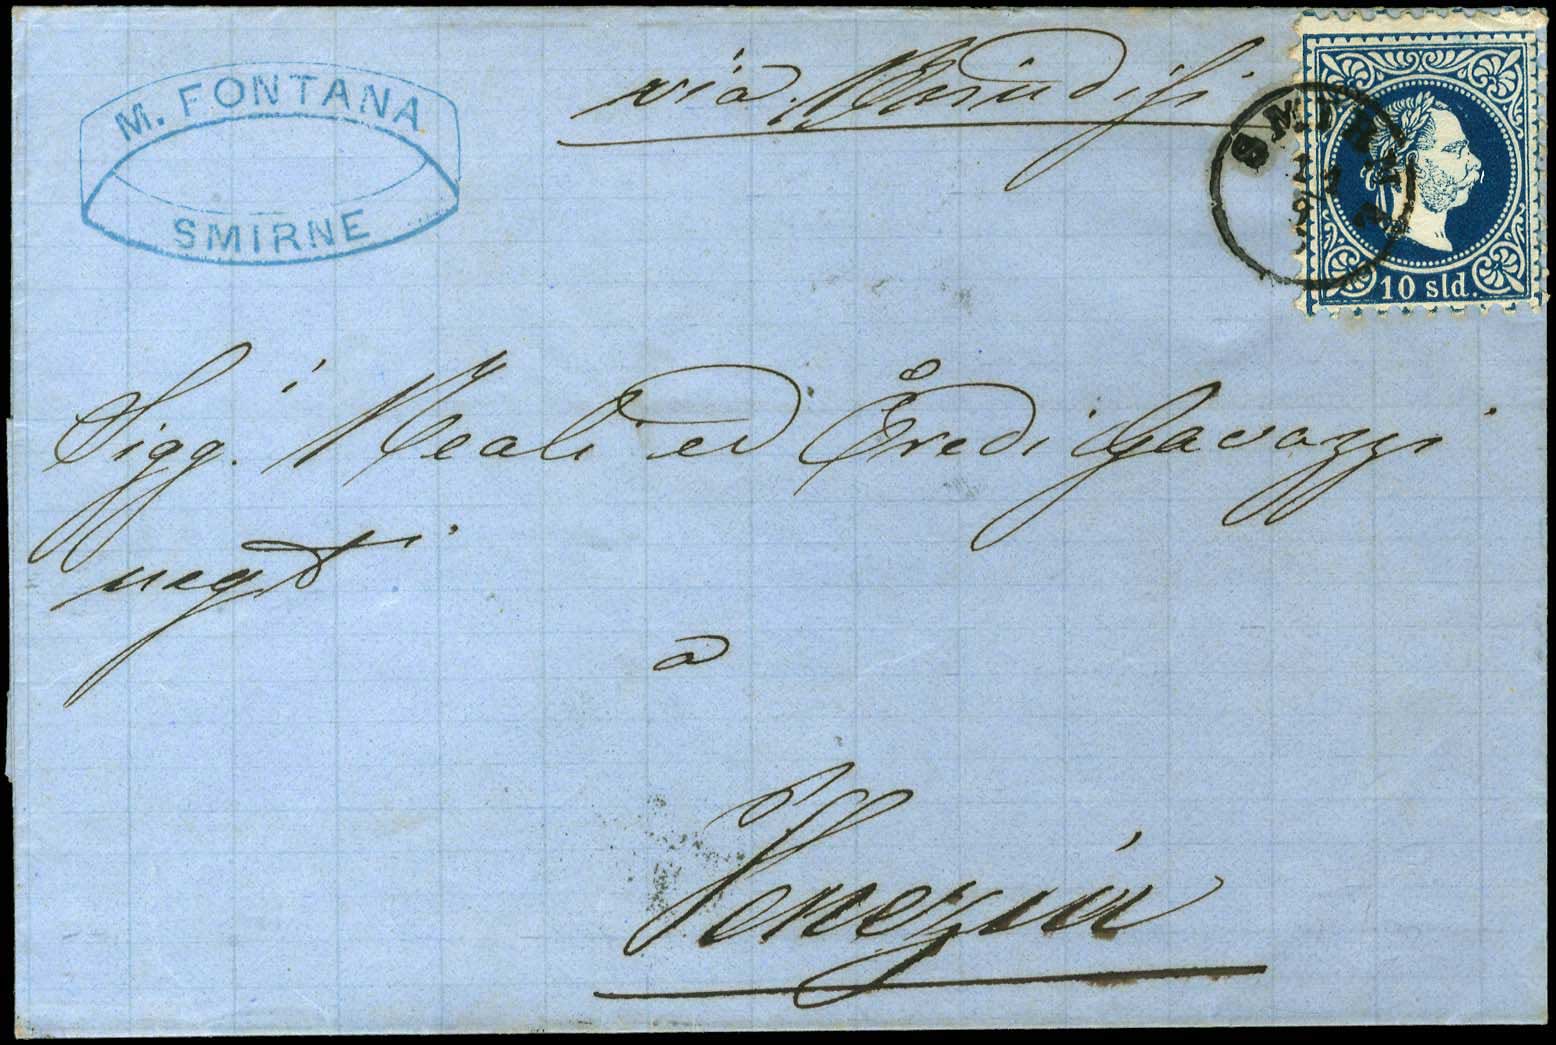 M. FONTANA
SMIRNE
via Brindisi
10 sld.
Sigg.i Reali ed Eredi Gavazzi
negti
a
Venezia